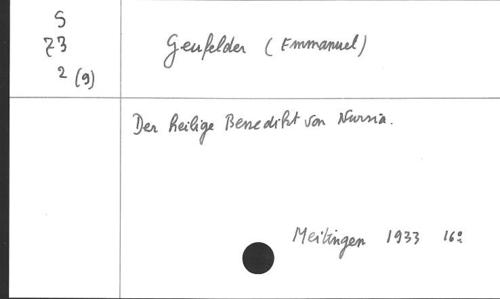 S
73
2 (9)
Genfelder (Emmanuel)
Der heilige Benedikt von Nursia.
Meitingen 1933 16º